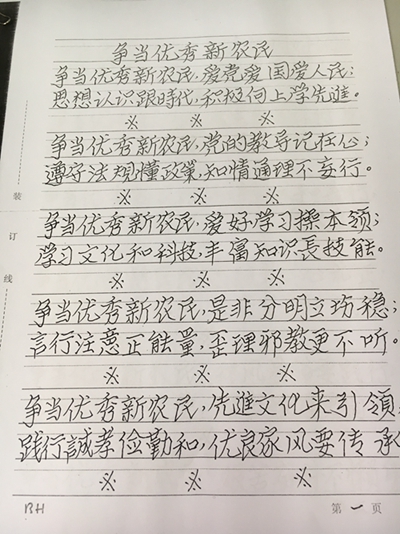 争当优秀新农民
争当优秀新农民，爱党爱国爱人民；
思想认识跟時代，积极向上学先進。
※ ※ ※
争当优秀新农民，党的教导记在心；
遵守法规懂政策，知情通理不妄行。
※ ※ ※
争当优秀新农民，爱好学习操本领；
学习文化和科技，丰富知识長技能。
※ ※ ※
争当优秀新农民，是非分明立场稳；
言行注意正能量，歪理邪教更不听。
※ ※ ※
争当优秀新农民，先進文化来引領
践行誠孝俭勤和，优良家风要传承
※ ※ ※
装
订
线
BH
第一页